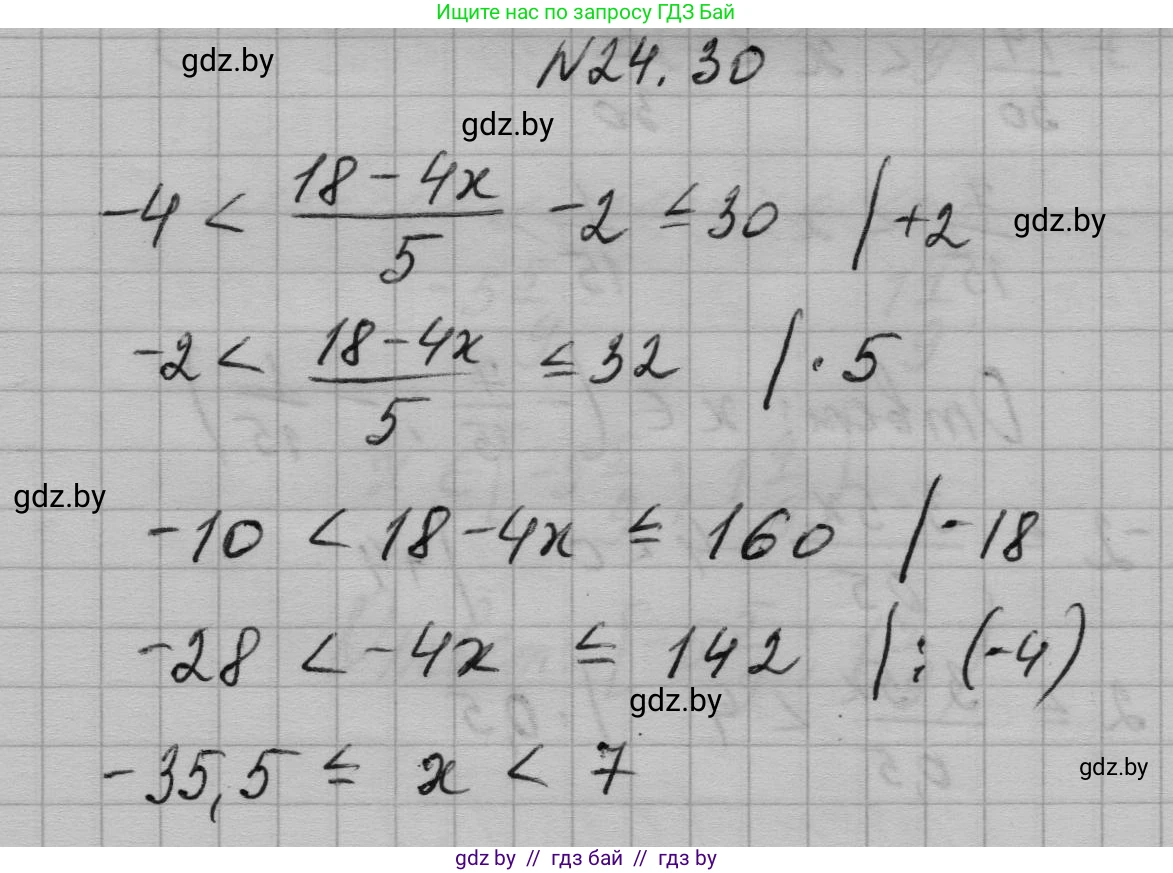 Ищите нас по запросу ГДЗ Бай
gdz.by
N24.30
gdz.by
-4 < (18 - 4x)/5 - 2 ≤ 30 | +2
gdz.by
-2 < (18 - 4x)/5 ≤ 32 | · 5
gdz.by
-10 < 18 - 4x ≤ 160 | -18
-28 < -4x ≤ 142 | : (-4)
gdz.by
-35,5 ≤ x < 7
gdz.by
gdz by // гдз бай // gdz by